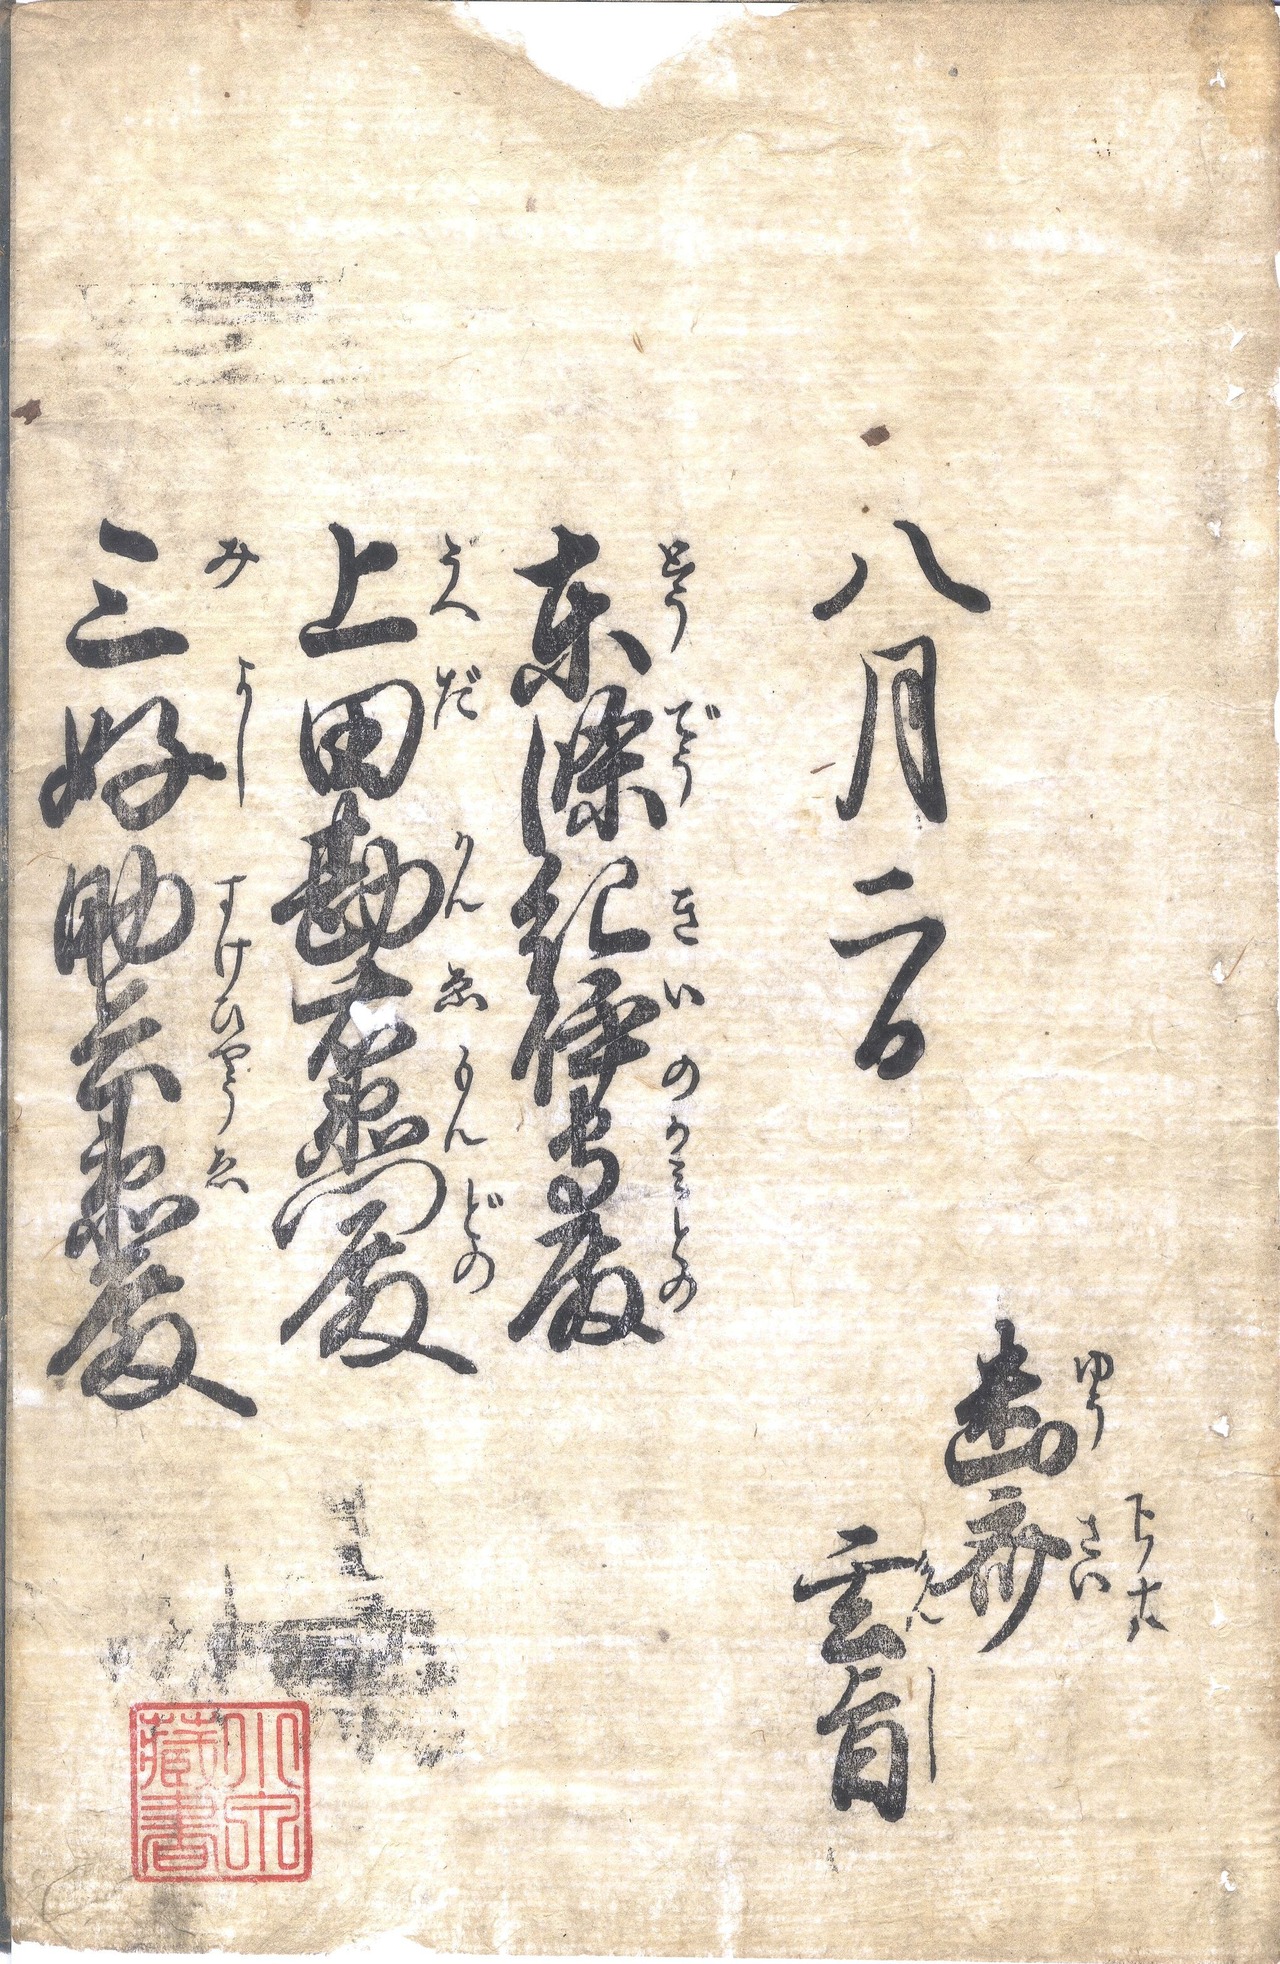 八月二日
幽斎
ゆうさい
玄旨
げんし
東條紀伊守殿
とうでうきいのかみとの
上田勘右衛門殿
うへだかんゑもんどの
三好助兵衛殿
みよしすけひやうゑ
藏書